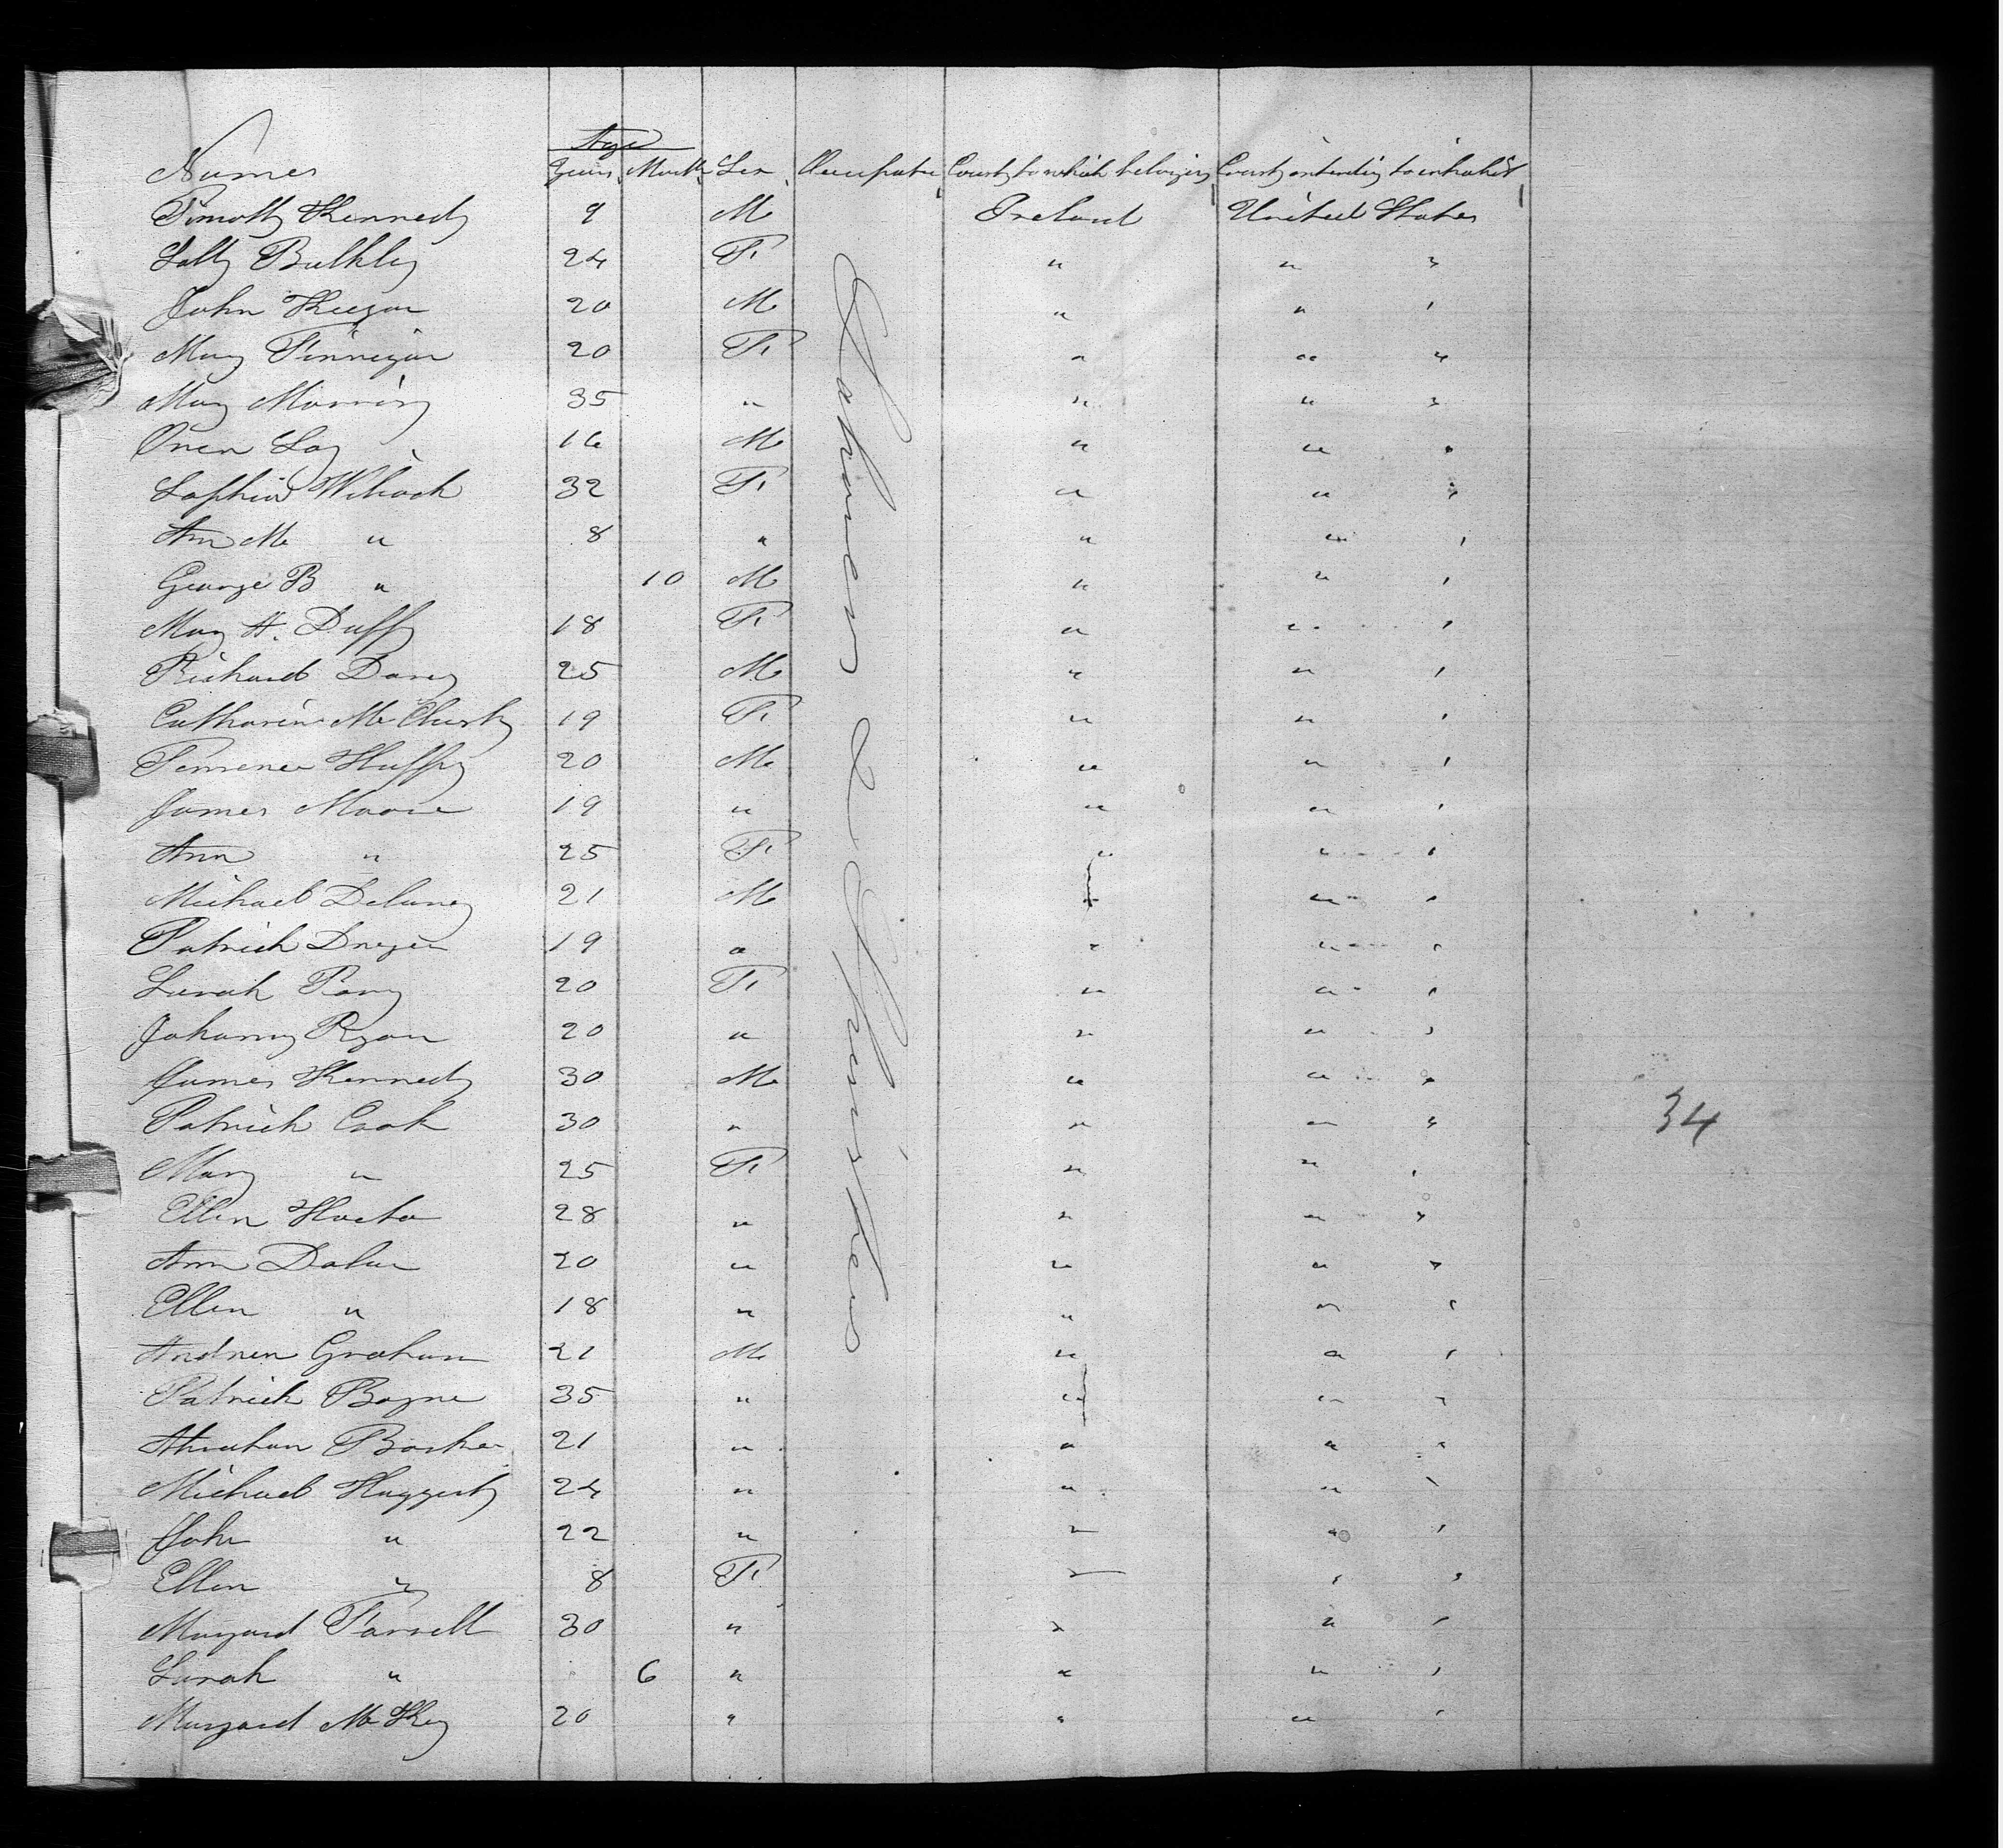 Names Age Years Month Sex Occupation Country to which belonging Country intending to inhabit
Timothy Kennedy 9 M Ireland United States
Sally Bulkley 24 F " " "
John Keegan 20 M " " "
Mary Finnegan 20 F " " "
Mary Morris 35 " " " "
Owen Loy 16 M " " "
Sophia Wilcock 32 F " " "
Ann M " 8 " " " "
George B " 10 M " " "
Mary A. Duffy 18 F " " "
Richard Darcy 25 M " " "
Catharine McClusky 19 F " " "
Terrence Huffy 20 M " " "
James Moore 19 " " " "
Ann " 25 F " " "
Michael Delaney 21 M " " "
Patrick 19 " " " "
Sarah 20 F " " "
Johanny Ryan 20 " " " "
James Kennedy 30 M " " "
Patrick Cook 30 " " " "
Mary " 25 F " " "
Ellen 28 " " " "
Ann 20 " " " "
Ellen " 18 " " " "
Andrew Graham 21 M " " "
Patrick Boyne 35 " " " "
Abraham 21 " " " "
Michael Haggerty 24 " " " "
John " 22 " " " "
Ellen " 8 F " " "
Margaret Farrell 30 " " " "
Sarah " 6 " " " "
Margaret McKey 20 " " " "
34